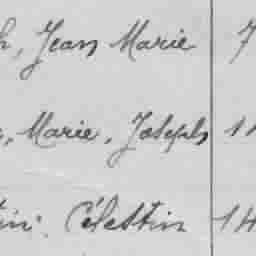 h, Jean Marie 7
, Marie, Joseph 11
tin. Célestin 14